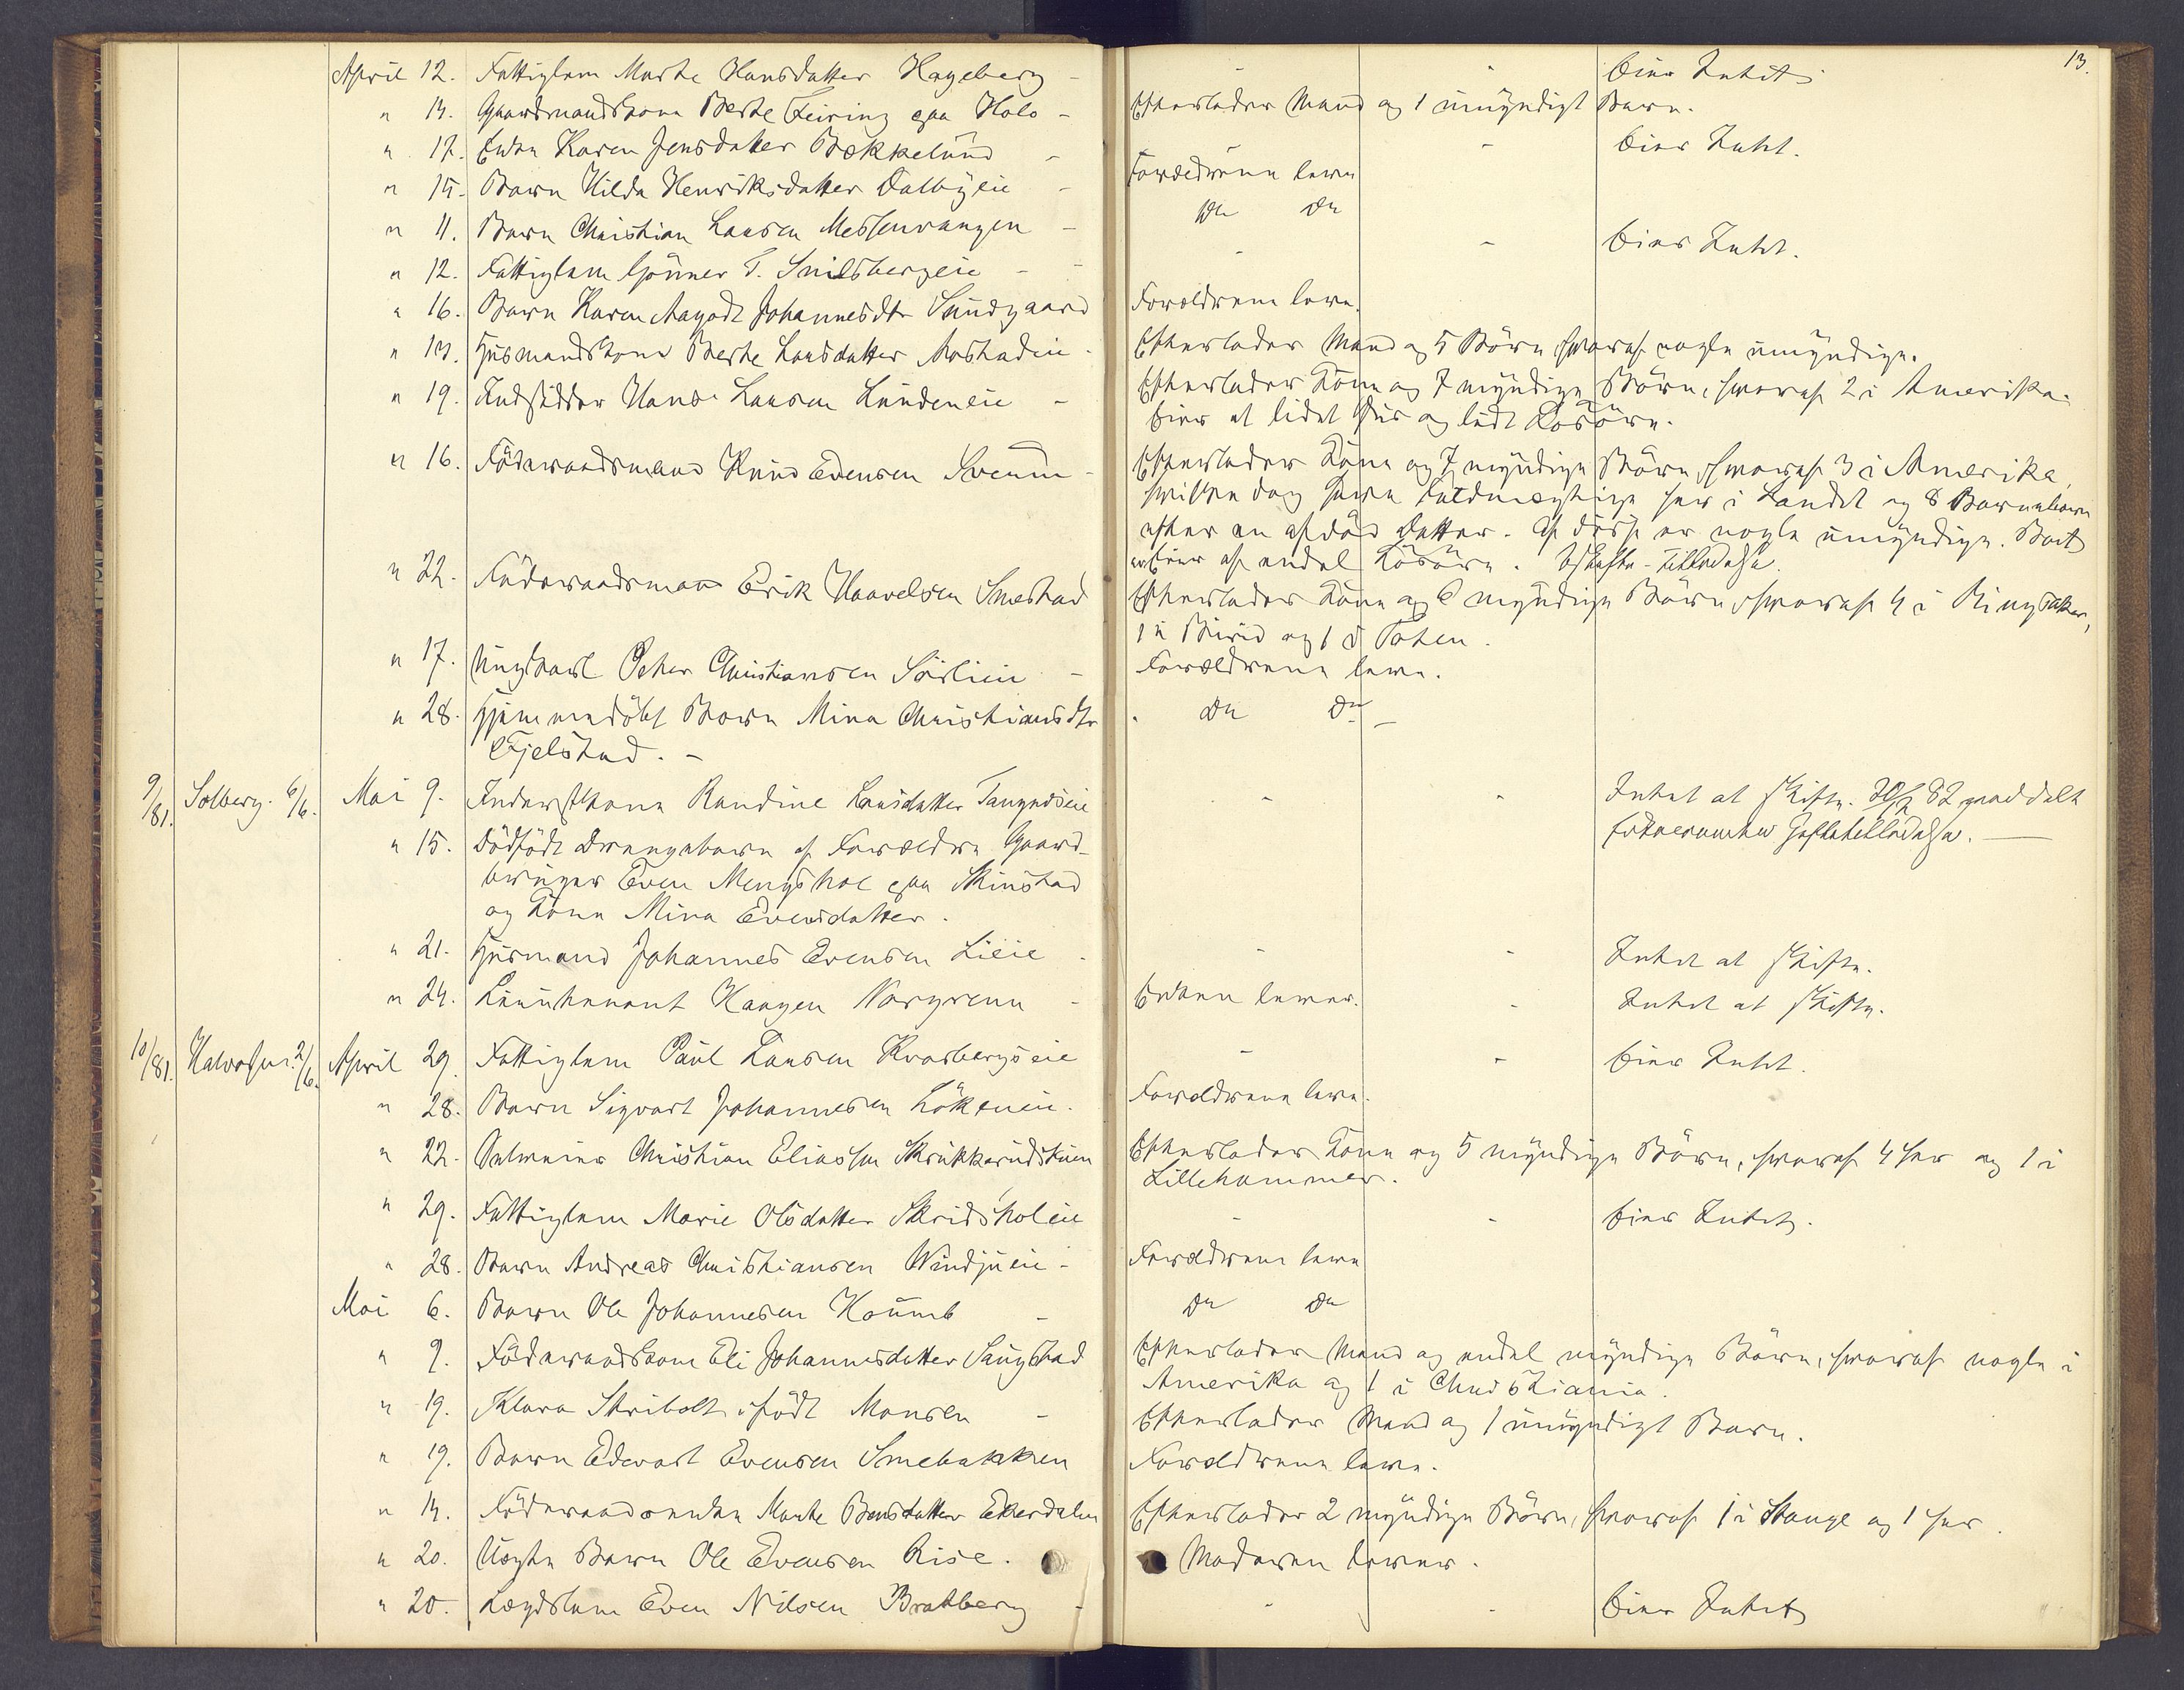 13.
April 12. Fattiglem Marte Hansdatter Hageberg - - - Eier Intet
" 13. Gaardmandskone Berte Feiring paa Holo - Efterlader Mand og 1 umyndigt Barn.
" 17. Enke Karen Jensdatter Bækkelund - - - Eier Intet.
" 15. Barn Hilda Henriksdatter Dalbyeie - Forældrene leve
" 11. Barn Christian Larsen Messenvangen - Do Do
" 12. Fattiglem Gunner T. Snilsbergeie - - - Eier Intet.
" 16. Barn Karen Aagodt Johannesdtr Sundgaard Forældrene leve.
" 13. Husmandskone Berte Larsdatter Arstadeie - Efterlader Mand og 5 Børn, hvoraf nogle umyndige.
" 19. Indsidder Hans Larsen Lundeneie - Efterlader Kone og 7 myndige Børn, hvoraf 2 i Amerika.
Eier et lidet Hus og lidt Løsøre.
" 16. Føderaadsmand Knud Evensen Sveum - Efterlader Kone og 7 myndige Børn, hvoraf 3 i Amerika,
hvilke dog have Fuldmægtige her i Landet og 8 Barnebørn
efter en afdød Datter. Af disse er nogle umyndige. Boet
eier en endel Løsøre. Uskifte-Tilladelse.
" 22. Føderaadsmand Erik Haavelsen Smestad Efterlader Kone og 6 myndige Børn, hvoraf 4 i Ringsaker,
1 i Birid og 1 i Toten.
" 17. Ungkarl Peter Christiansen Sørlien - Forældrene leve.
" 28. Hjemmedøbt Barn Mina Christiansdtr - Do Do -
Fjelstad. -
9/81. Solberg. 6/6. Mai 9. Inderstkone Randine Larsdatter Tangndseie - - Intet at skifte. 82 meddelt
Enkemanden Giftetilladelse. -
" 15. Dødfødt Drengebarn af Forældre Gaard-
bruger Even Mengshol paa Skinstad
og Kone Mina Evensdatter.
" 21. Husmand Johannes Evensen Lieie - - - Intet at skifte.
" 24. Leuutenant Haagen Norgrenn - Enken lever. - Intet at skifte.
10/81. Halvorsen. 2/6. April 29. Fattiglem Paul Larsen Kvarbergseie - - Eier Intet.
" 28. Barn Sigvart Johannesen Løkeneie. Forældrene leve.
" 22. Selveier Christian Eliassen Skrukkerudstuen Efterlader Kone og 5 myndige Børn, hvoraf 4 her og 1 i
Lillehammer.
" 29. Fattiglem Marie Olsdatter Skridsholeie - - Eier Intet.
" 28. Barn Andreas Christiansen Windjueie - Forældrene leve
Mai 6. Barn Ole Johannesen Kaumb - Do Do
" 9. Føderaadskone Eli Johannesdatter Saugstad Efterlader Mand og endel myndige Børn, hvoraf nogle i
Amerika og 1 i Christiania.
" 19. Klara Skribolt, født Monsen - Efterlader Mand og 1 umyndigt Barn.
" 19. Barn Edevart Evensen Smebakken Forældrene leve.
" 14. Føderaadsenke Marte Berisdatter Ekerdalen Efterlader 2 myndige Børn, hvoraf 1 i Stange og 1 her.
" 20. Uægte Barn Ole Evensen Rise. Moderen lever.
" 20. Lægdslem Even Nilsen Bratberg - - - Eier Intet